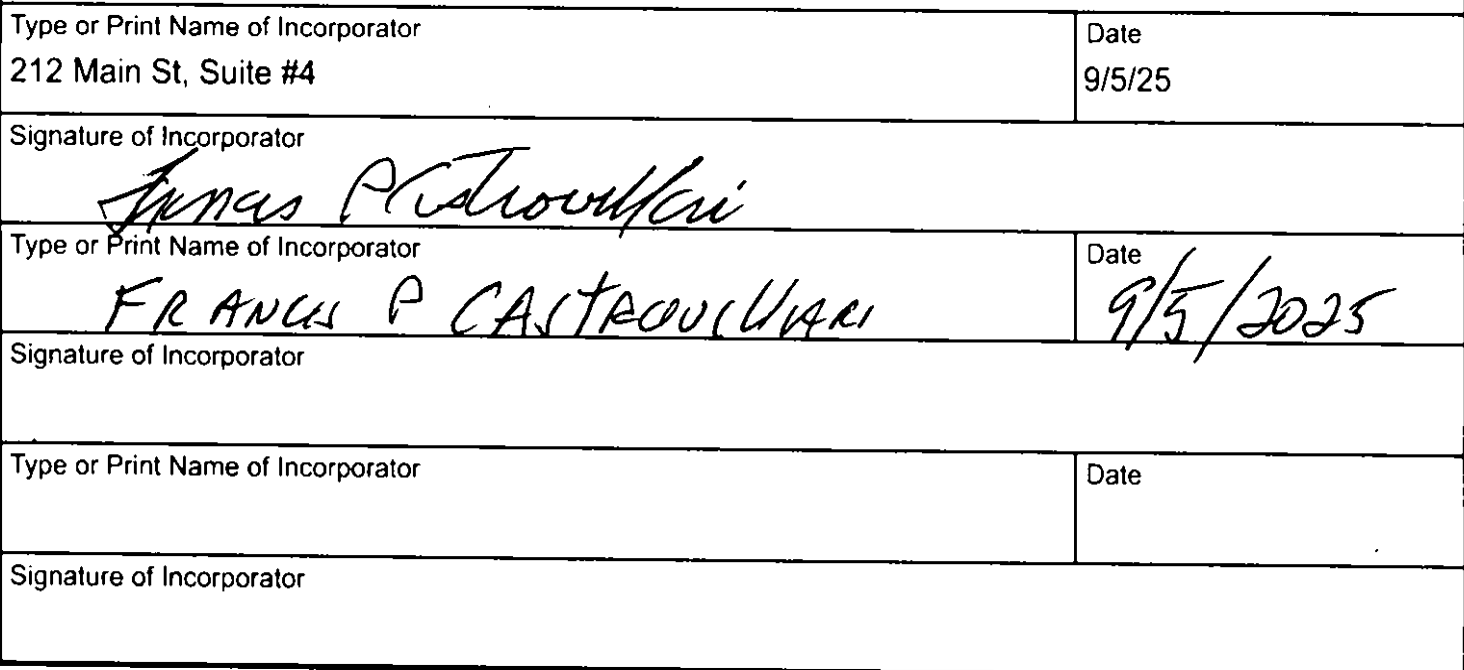 Type or Print Name of Incorporator
Date
212 Main St, Suite #4
9/5/25
Signature of Incorporator
Francis P Castrovillari
Type or Print Name of Incorporator
Date
FRANCIS P CASTROVILLARI
9/5/2025
Signature of Incorporator
Type or Print Name of Incorporator
Date
Signature of Incorporator